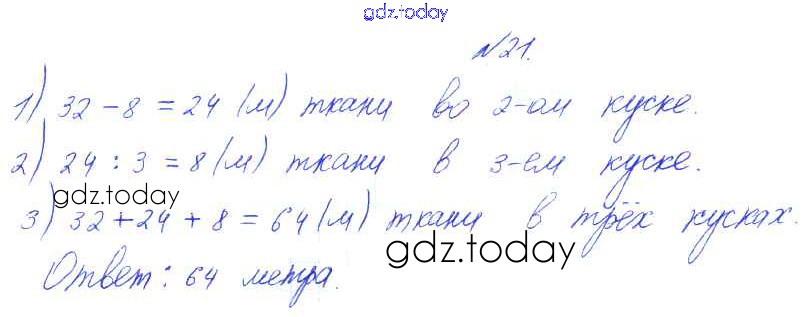 gdz.today
№21.
1) 32 - 8 = 24 (м) ткани во 2-ом куске.
2) 24 : 3 = 8 (м) ткани в 3-ем куске.
gdz.today
3) 32 + 24 + 8 = 64 (м) ткани в трёх кусках.
gdz.today
Ответ: 64 метра.